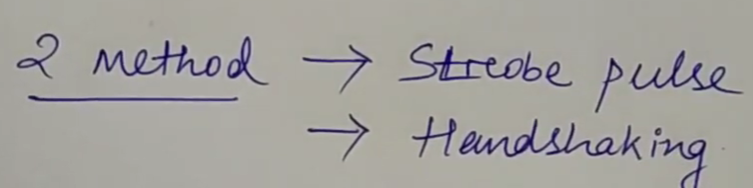 2 method → Strobe pulse
→ Handshaking